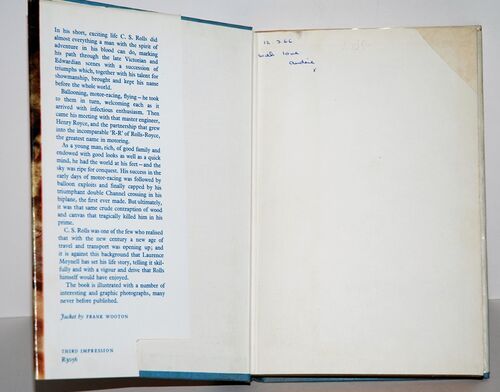 In his short, exciting life C. S. Rolls did
almost everything a man with the spirit of
adventure in his blood can do, marking
his path through the late Victorian and
Edwardian scenes with a succession of
triumphs which, together with his talent for
showmanship, brought and kept his name
before the whole world.
Ballooning, motor-racing, flying – he took
to them in turn, welcoming each as it
arrived with infectious enthusiasm. Then
came his meeting with that master engineer,
Henry Royce, and the partnership that grew
into the incomparable 'R-R' of Rolls-Royce,
the greatest name in motoring.
As a young man, rich, of good family and
endowed with good looks as well as a quick
mind, he had the world at his feet – and the
sky was ripe for conquest. His success in the
early days of motor-racing was followed by
balloon exploits and finally capped by his
triumphant double Channel crossing in his
biplane, the first ever made. But ultimately,
it was that same crude contraption of wood
and canvas that tragically killed him in his
prime.
C. S. Rolls was one of the few who realised
that with the new century a new age of
travel and transport was opening up; and
it is against this background that Laurence
Meynell has set his life story, telling it skil-
fully and with a vigour and drive that Rolls
himself would have enjoyed.
The book is illustrated with a number of
interesting and graphic photographs, many
never before published.
Jacket by FRANK WOOTON
THIRD IMPRESSION
R3056
with love